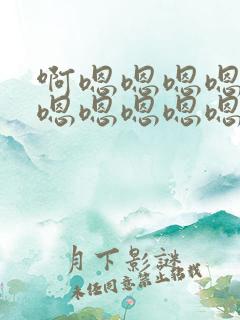 啊嗯嗯嗯嗯
嗯嗯嗯嗯嗯
月下影謎
未经同意禁止转载